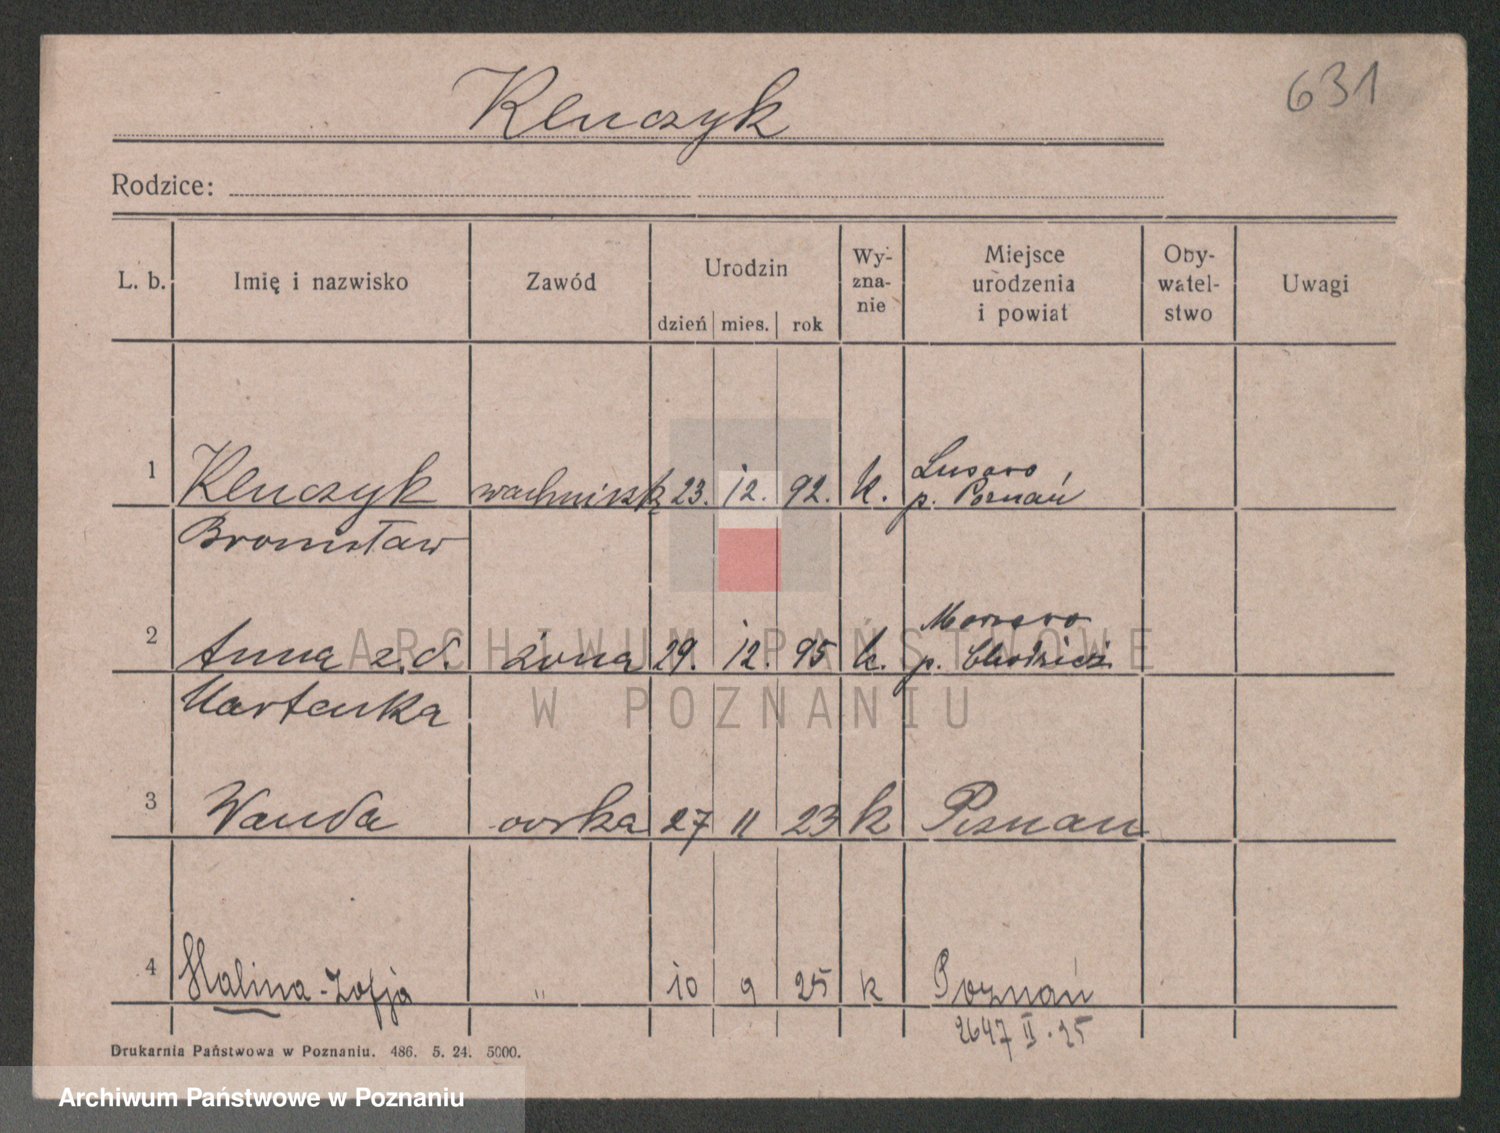 Klenczyk
631
Rodzice:
L. b. Imię i nazwisko Zawód Urodzin dzień mies. rok Wy-zna-nie Miejsce urodzenia i powiat Oby-watel-stwo Uwagi
Lusowo
1 Klenczyk 23. 12. 92. k. p. Poznań
Bronisław
2 Anna z. d. żona 29. 12. 95 k. p. Chodzież
3 Wanda córka 27 11 23 k Poznań
4 Halina-Zofja " 10 9 25 k Poznań
2647 II. 25
Drukarnia Państwowa w Poznaniu. 486. 5. 24. 5000.
ARCHIWUM PAŃSTWOWE
W POZNANIU
Archiwum Państwowe w Poznaniu